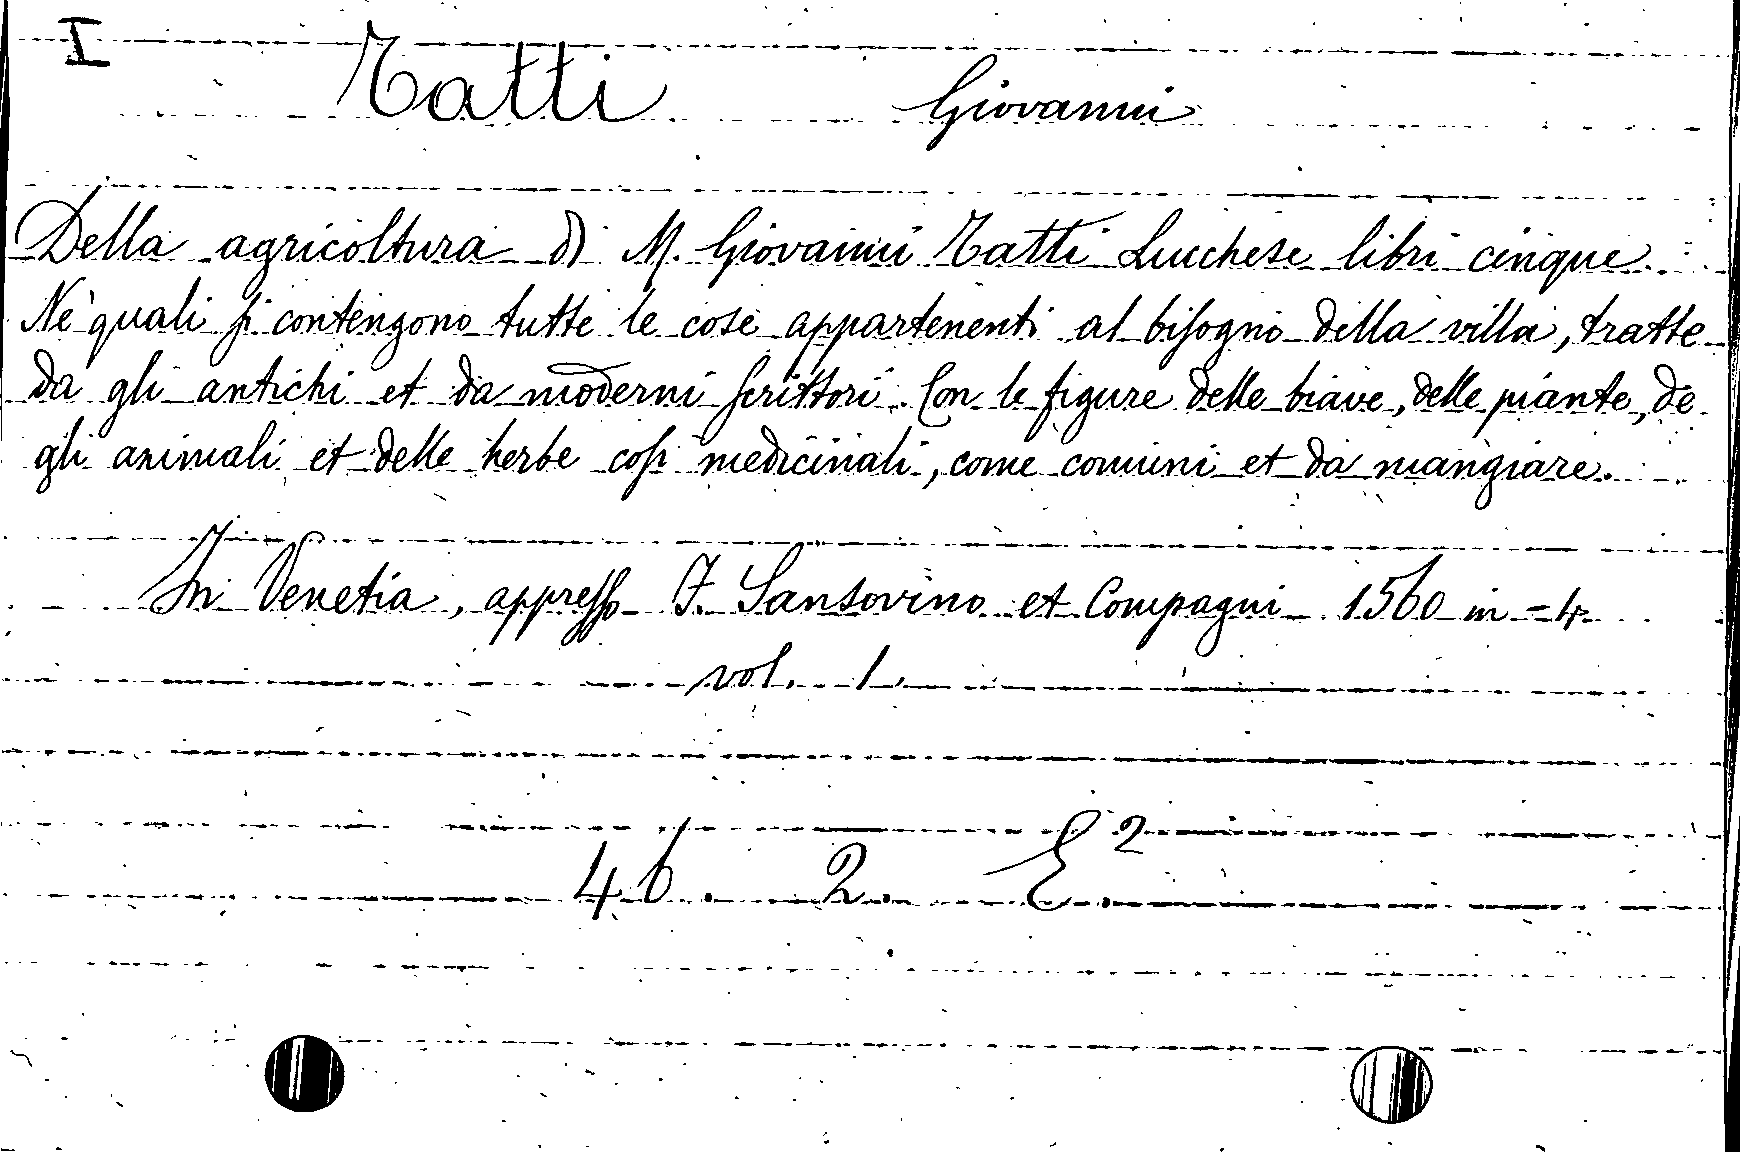 I
Tatti Giovanni
Della agricoltura di M. Giovanni Tatti Lucchese libri cinque.
Ne' quali ſi contengono tutte le cose appartenenti al biſogno della villa, tratte
da gli antichi et da moderni ſcrittori. Con le figure delle biave, delle piante, de
gli animali et delle herbe coſi medicinali, come comuni et da mangiare.
In Venetia, appreſſo F. Sansovino et Compagni 1560 in-4.
vol. 1.
46. 2. E.²